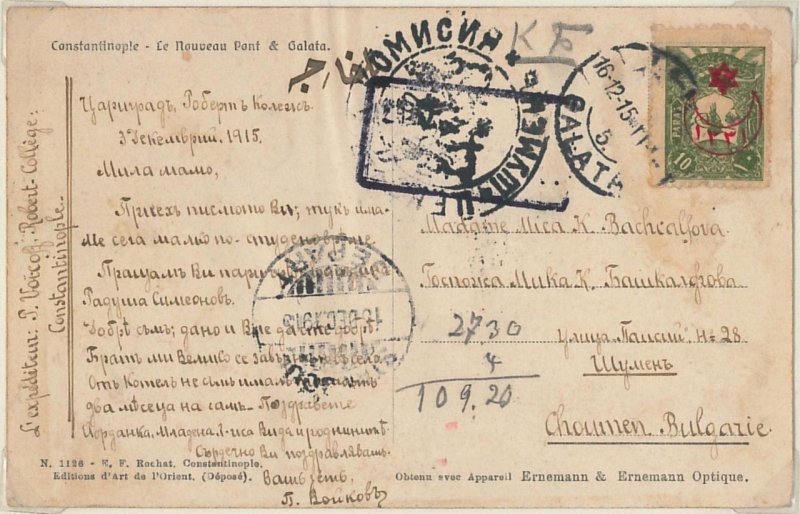 Constantinople - Le Nouveau Pont & Galata.
Цариградъ, Робертъ Колежъ
3 Декемврий, 1915.
Мила мамо,
Приехъ писмото Ви; тукъ има-
ме сега малко по-студеновѣме.
Пращамъ Ви
Радуша Симеоновъ.
Добрѣ съмъ; дано и Вие да сте добрѣ.
Братъ ми Велико се
Отъ Котелъ не съмъ ималъ
два мѣсеца на самъ. Поздравете
Йорданка, Младена, Г-жа Вида и роднинитѣ.
Сърдечно Ви поздравлявамъ.
Вашъ
П. Войковъ
L'expéditeur: P. Voicoff. Robert-Collège:
Constantinople.
КОМИСИЯ
К Б
GALATA
16-12-15
5
10 PARAS
PERA
15 DEC. 1915
Madame Mica K. Bachcalfova
Госпожа Мика К. Башкалфова
улица "Паисий" № 28
Шуменъ
Choumen Bulgarie
2730
4
109.20
N. 1126 - E. F. Rochat, Constantinople.
Editions d'Art de l'Orient. (Déposé).
Obtenu avec Appareil Ernemann & Ernemann Optique.